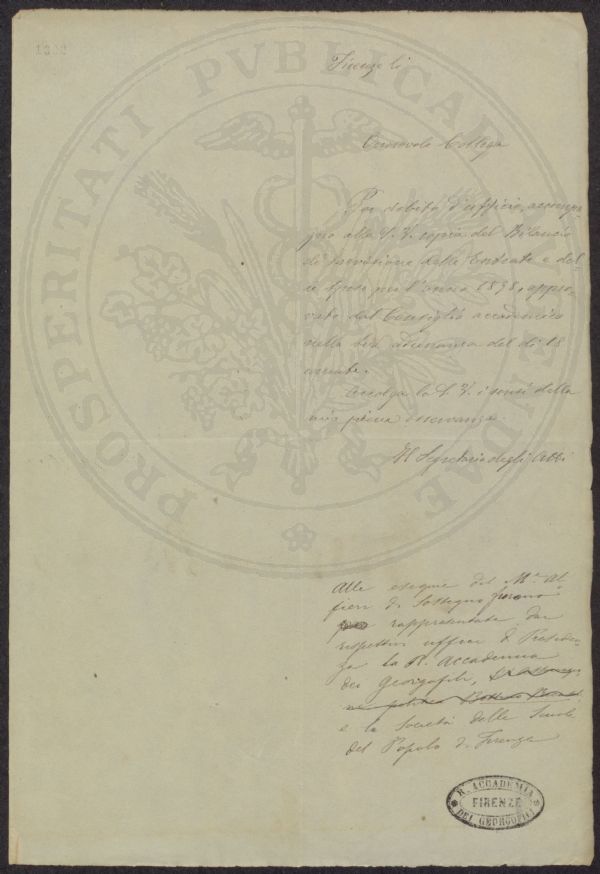 1898
PROSPERITATI PVBLICAE AVGENDAE
Firenze li
Onorevole Collega
Per debito d'ufficio, accompa-
gno alla S. V. copia del Bilancio
di previsione delle Entrate e del-
le Spese per l'anno 1898, appro-
vato dal Consiglio accademico
nella sua adunanza del dì 18
corrente.
Accolga la S. V. i sensi della
mia piena osservanza.
Il Segretario degli Atti
Alle esequie del M.se Al
fieri di Sostegno furono
rappresentate dai
respettivi uffici di Presiden-
za la R. Accademia
dei Georgofili,
e la Società delle Scuole
del Popolo di Firenze
R. ACCADEMIA
FIRENZE
DEI GEORGOFILI